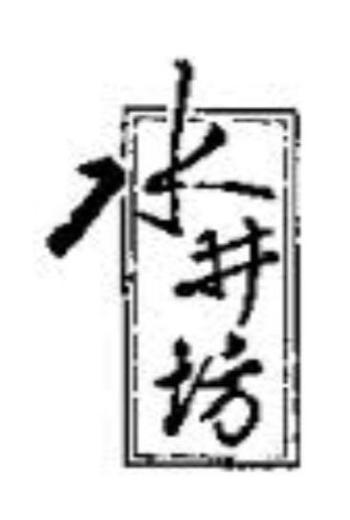 水井坊